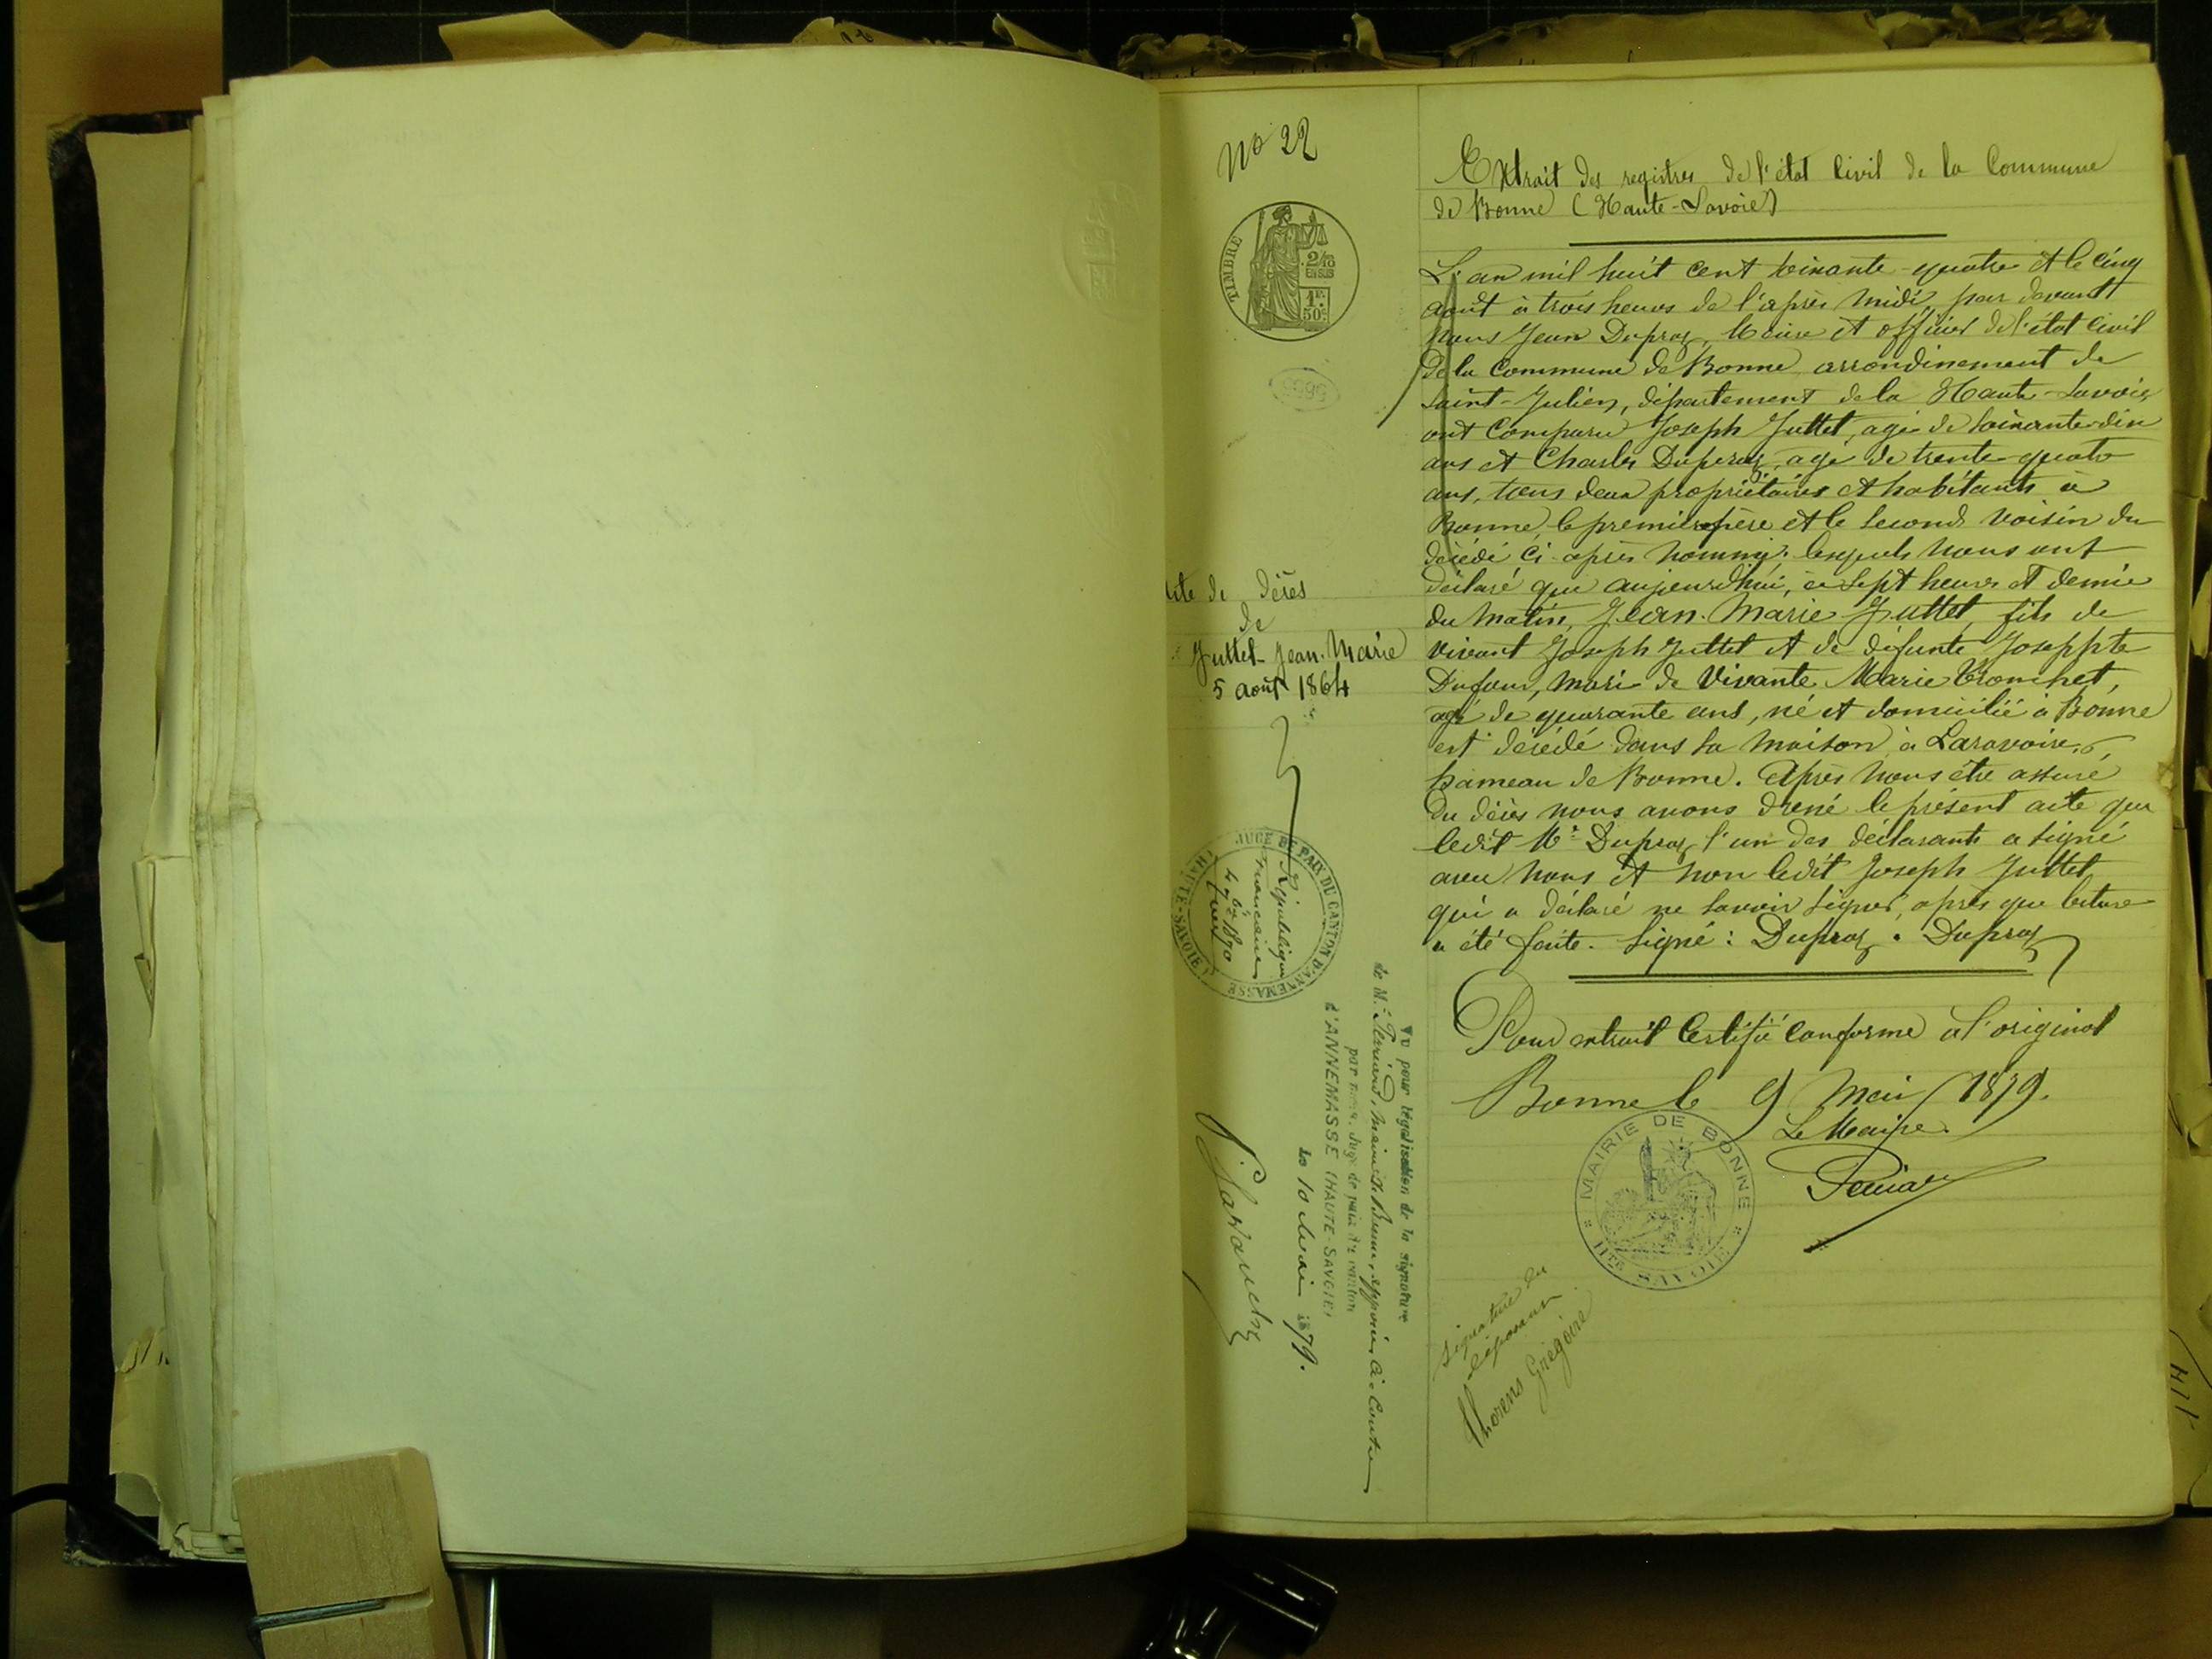 No 22
TIMBRE
2/10
EN SUS
1F.
50c.
Acte de décès
de
Juttet Jean-Marie
5 août 1864
JUGE DE PAIX DU CANTON D'ANNEMASSE
(HAUTE-SAVOIE)
République
Française
4 7bre 1870
Vu pour légalisation de la signature
de M. Maire de Bonne, apposée Ci-Contre
par nous, Juge de paix du canton
d'ANNEMASSE (HAUTE-SAVOIE)
Le 10 Mai 1879.
Extrait des registres de l'état Civil de la Commune
de Bonne (Haute-Savoie)
L'an mil huit cent soixante-quatre et le cinq
août à trois heures de l'après midi, par devant
nous Jean Dupraz, Maire et officier de l'état civil
de la Commune de Bonne arrondinement de
Saint-Julien, département de la Haute-Savoie,
ont Comparu Joseph Juttet, agé de soixante-dix
ans et Charles Duperaz, agé de trente-quatre
ans, tous deux propriétaires et habitants à
Bonne, le premier père et le second voisin du
décédé ci-après nommé; lesquels nous ont
déclaré que aujourd'hui, à sept heures et demie
du matin, Jean-Marie Juttet, fils de
vivant Joseph Juttet et de défunte Josephte
Dufour, mari de Vivante Marie Trombet,
agé de quarante ans, né et domicilié à Bonne
est décédé dans sa maison à Laravoire,
hameau de Bonne. Après nous être assuré
du décès nous avons dressé le présent acte que
ledit Mr Dupraz l'un des déclarants a signé
avec nous et non ledit Joseph Juttet
qui a déclaré ne savoir signer, après que lecture
a été faite. Signé: Dupraz. Dupraz
Pour extrait Certifié Conforme à l'original
Bonne le 9 Mai 1879.
Le Maire.
MAIRIE DE BONNE
HTE SAVOIE
Signature du
déposant
Thorens Grégoire